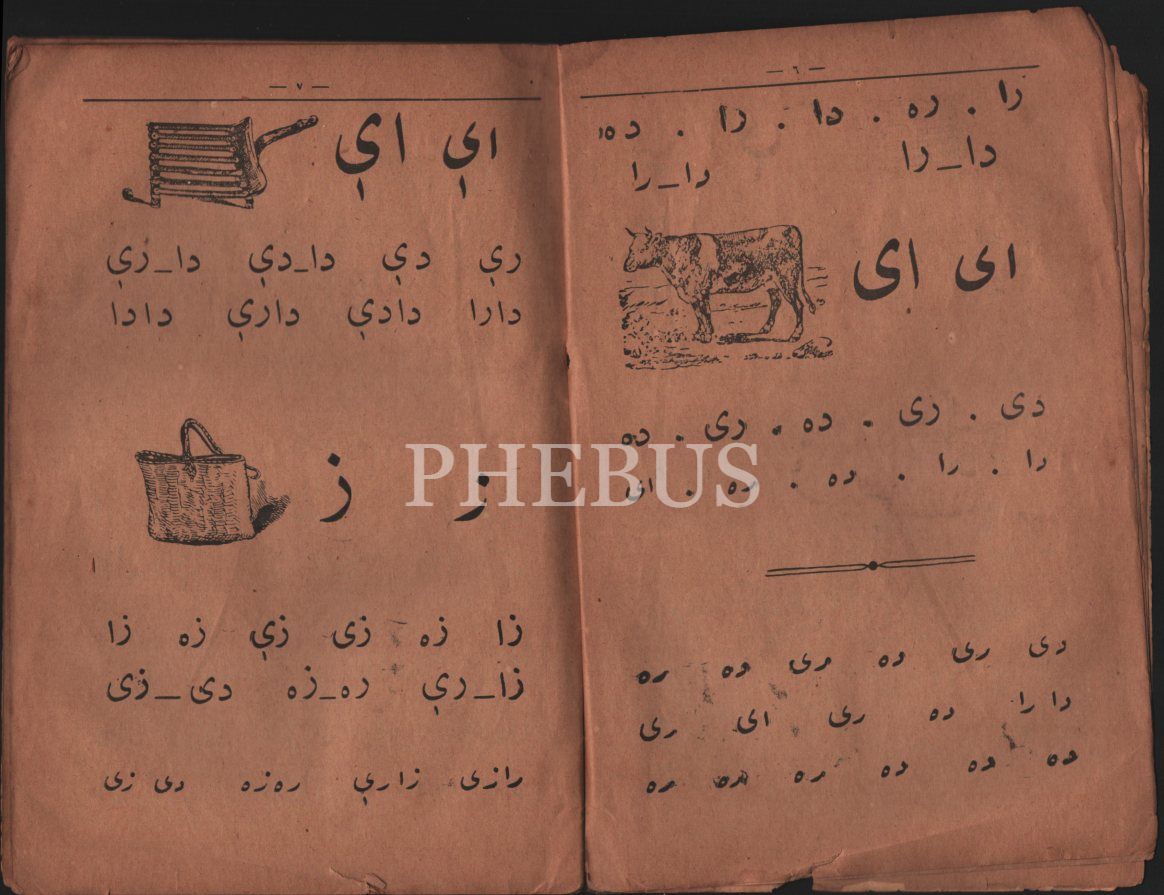 — ٦ —
را . ره . دا . را . ده
دا_را دا_را
ای ای
دی . ری . ده . ری . ده
دا . را . ده . ره . ای
دی ری ده ری ده ره
دا را ده ری ای ری
ده ده ده ره ره ره
— ٧ —
اې اې
رې دې دا_دې دا_رې
دارا دادې دارې دادا
ز ز
زا زه زی زې زه زا
زا_رې ره_زه دی_زی
رازی زارې ره‌زه دی زی
PHEBUS